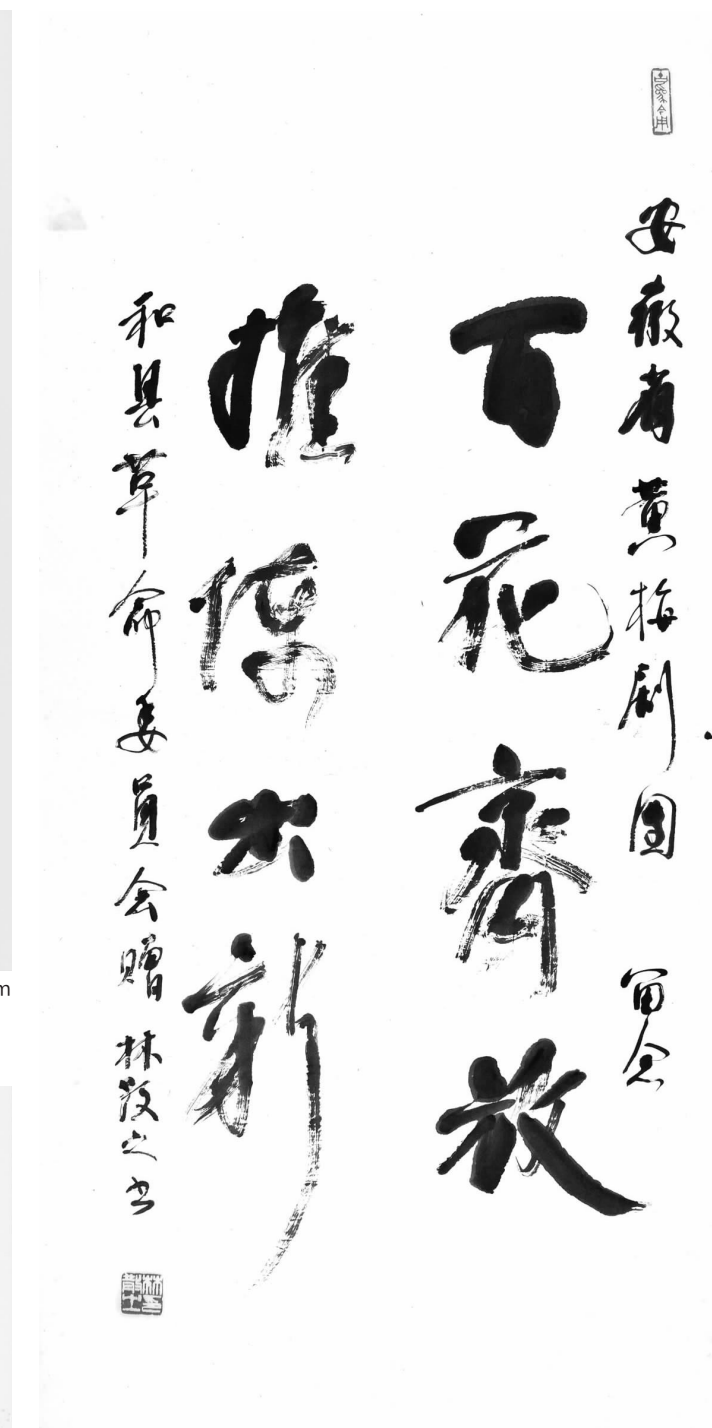 安徽省黄梅剧团 留念
百花齊放
推陳出新
和县革命委員会赠 林散之书
m